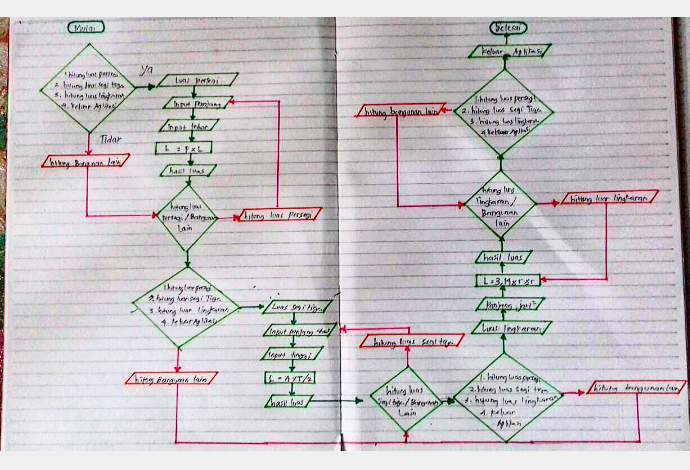 Mulai
1. hitung luas persegi
2. hitung luas segi tiga
3. hitung luas lingkaran
4. keluar Aplikasi
Ya
Tidak
hitung Bangunan lain
Luas persegi
Input panjang
Input lebar
L = P x L
hasil luas
hitung luas
persegi / Bangunan
Lain
hitung luas persegi
1. hitung luas persegi
2. hitung luas segi Tiga
3. hitung luas lingkaran
4. keluar Aplikasi
hitung Bangunan lain
Luas segi tiga
Input panjang alas
Input tinggi
L = A x T / 2
hasil luas
hitung luas segi tiga
hitung luas
segi tiga / Bangunan
Lain
1. hitung luas persegi
2. hitung luas segi Tiga
3. hitung luas lingkaran
4. keluar
Aplikasi
hitung bangunan lain
Luas lingkaran
Panjang jari²
L = 3,14 x r x r
hasil luas
hitung luas
lingkaran /
Bangunan
lain
hitung luas lingkaran
1. hitung luas persegi
2. hitung luas segi Tiga
3. hitung luas lingkaran
4. keluar Aplikasi
hitung bangunan lain
keluar Aplikasi
Selesai